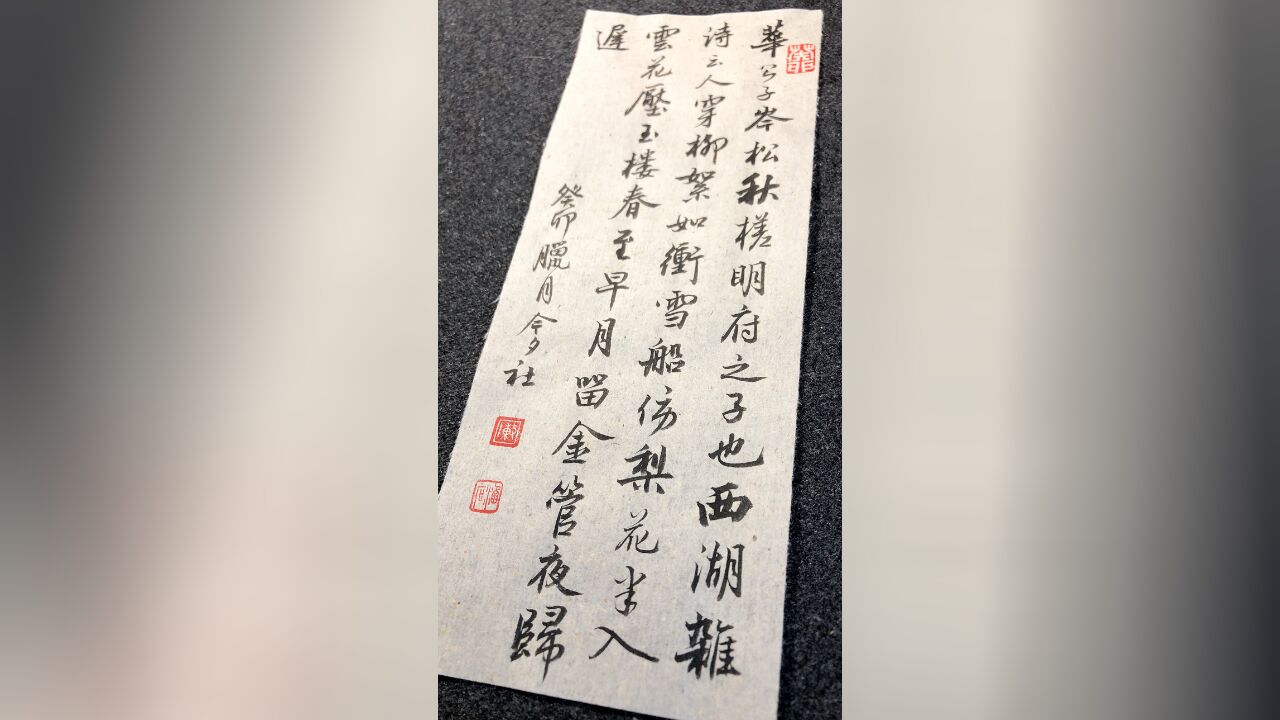 華公子岑松秋槎明府之子也西湖雜
诗云人穿柳絮如衝雪船仿梨花半入
雲花壓玉楼春至早月留金管夜歸
遲
癸卯臘月今夕社